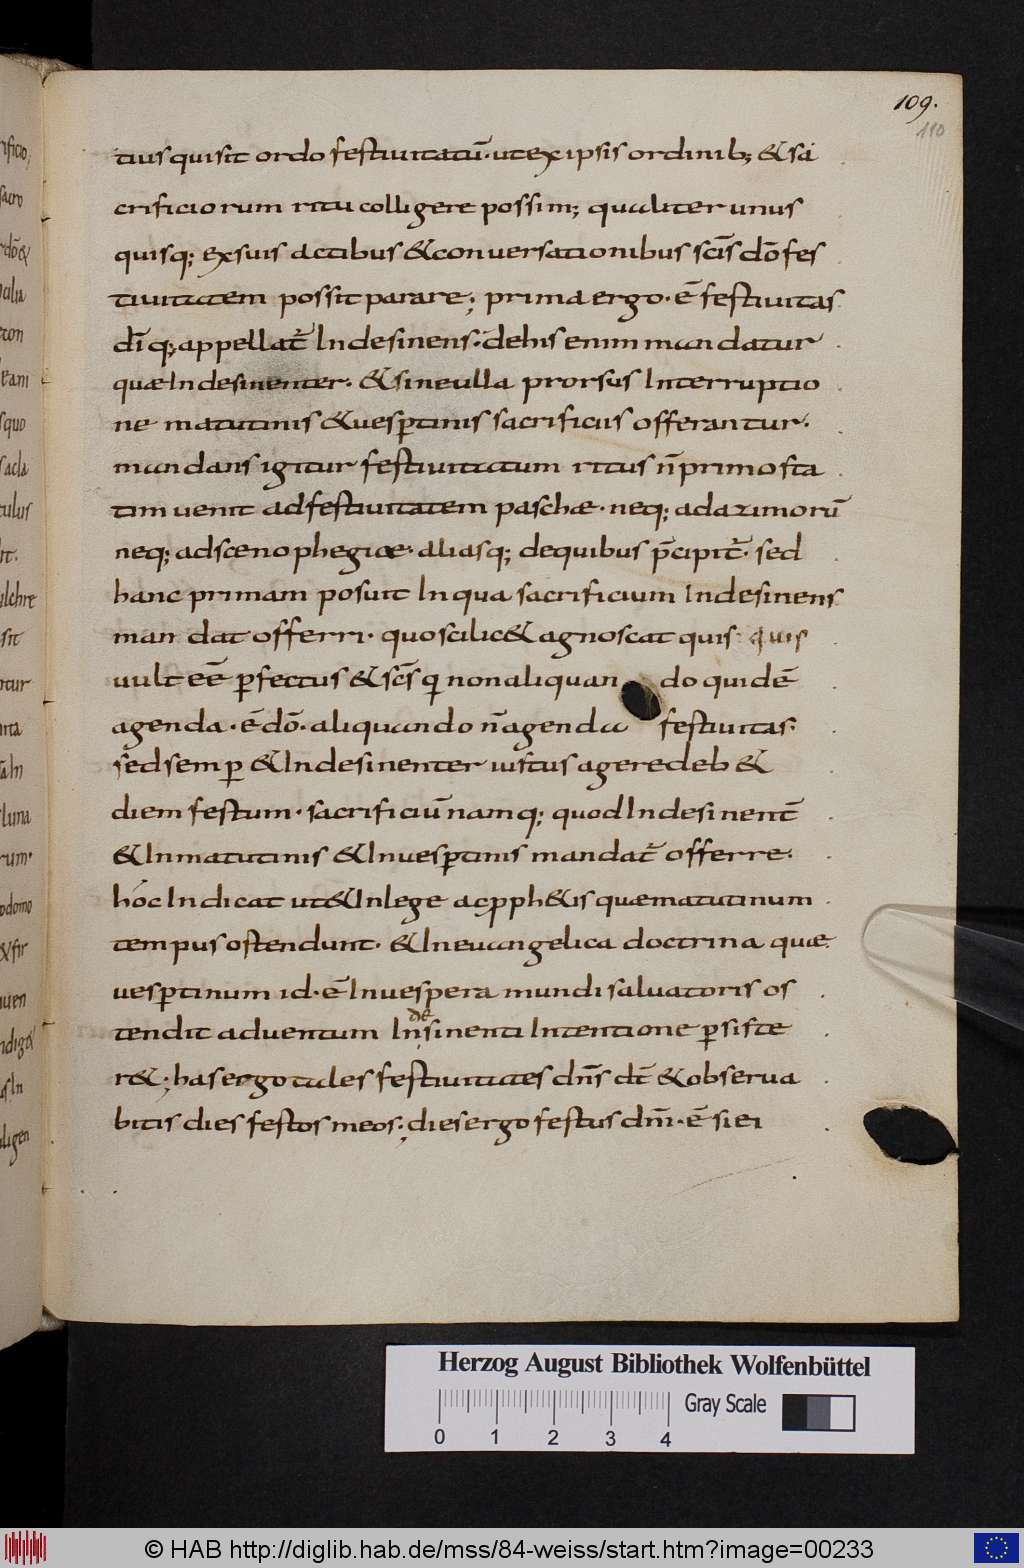 109.
110
tius quisit ordo festiuitatū· ut ex ipsis ordinib; & sa
crificiorum ritu colligere possim; qualiter unus
quisq; ex suis actibus & conuersationibus scīs dō fes
tiuitatem possit parare; prima ergo· ē festiuitas
dī q; appellat̄ Indesinens· de his enim mandatur
quæ Indesinenter· & sine ulla prorsus Interruptio
ne matutinis & uesptinis sacrificiis offerantur·
mandans igitur festiuitatum ritus n̄ primo sta
tim uenit ad festiuitatem paschæ· neq; ad azimorū
neq; ad scenophegiæ· aliasq; de quibus p̄cipit̄· sed
hanc primam posuit In qua sacrificium Indesinens
mandat offerri· quo scilic& agnoscat quis· quis
uult eē pfectus & scs̄ qi non aliquando quidē
agenda· ē dō· aliquando n̄ agenda festiuitas·
sed semp & Indesinenter iustus agere deb&
diem festum· sacrificiū namq; quod Indesinent̄
& In matutinis & In uesptinis mandat̄ offerre·
hoc Indicat ut & In lege ac pph&is quæ matutinum
tempus ostendunt· & In euangelica doctrina quæ
uesptinum id· ē In uespera mundi saluatoris os
tendit aduentum Insinenti Intentione psiste
de
r&; has ergo tales festiuitates dn̄s dt̄ & obserua
bitis dies festos meos; dies ergo festus dn̄i· ē si ei
Herzog August Bibliothek Wolfenbüttel
Gray Scale
0 1 2 3 4
© HAB http://diglib.hab.de/mss/84-weiss/start.htm?image=00233